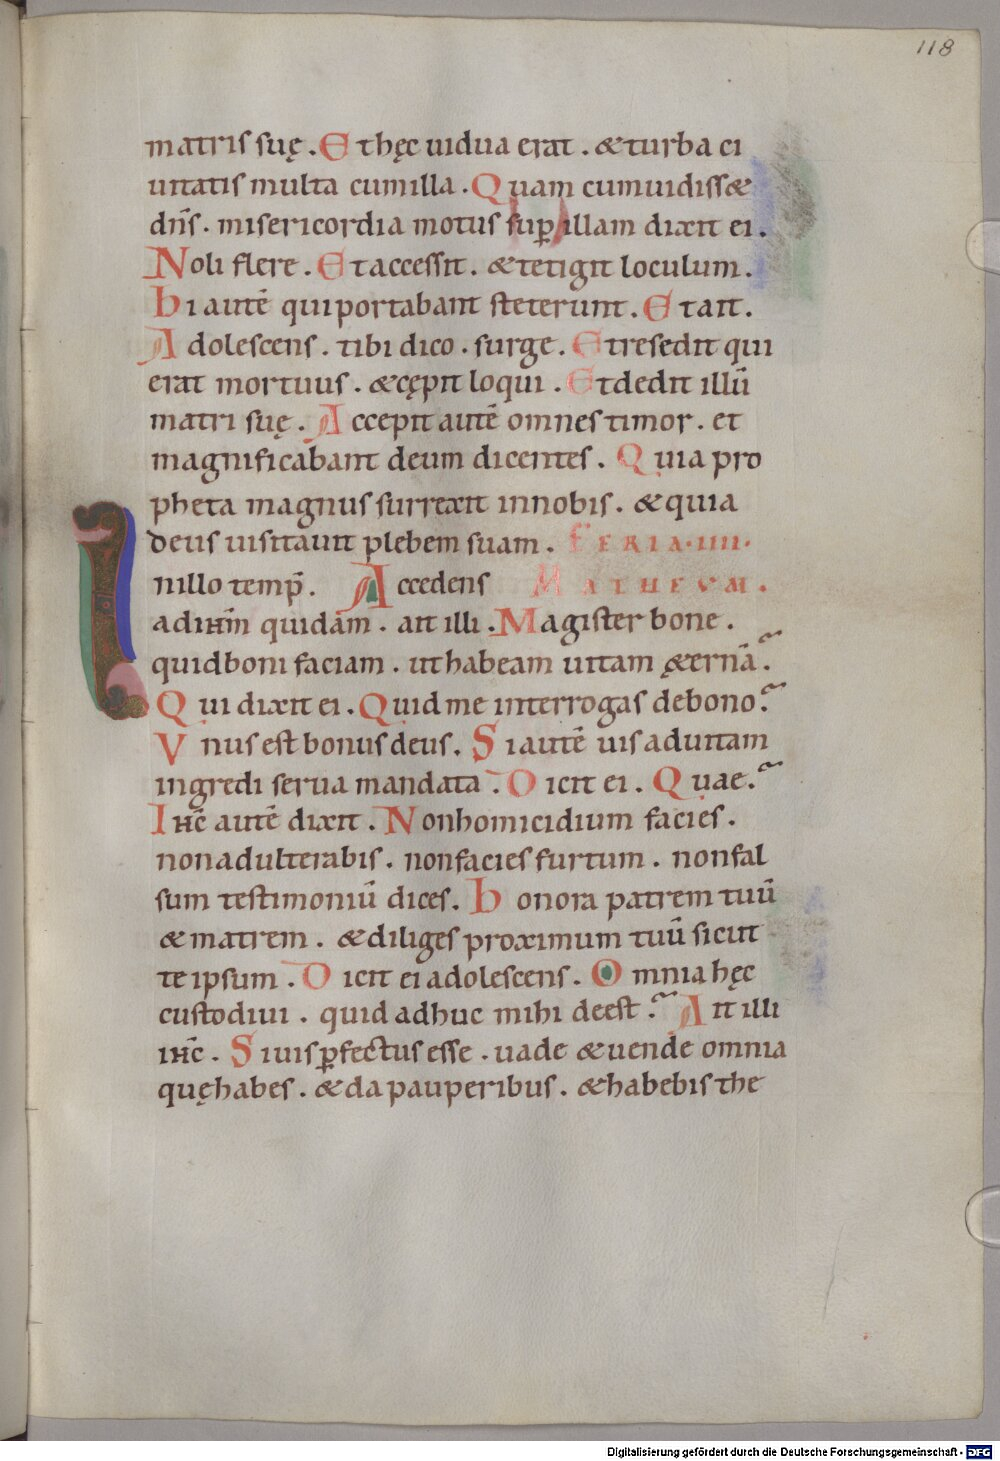 118
matris suę . Et hęc uidua erat . & turba ci
uitatis multa cum illa . Quam cum uidiss&
dn̄s . misericordia motus sup̱ illam dixit ei .
Noli flere . Et accessit . & tetigit loculum .
hi autē qui portabant steterunt . Et ait .
Adolescens . tibi dico . surge . Et resedit qui
erat mortuus . & cępit loqui . Et dedit illū
matri suę . Accepit autē omnes timor . et
magnificabant deum dicentes . Quia pro
pheta magnus surrexit in nobis . & quia
deus uisitauit plebem suam . FERIA . IIII .
In illo temp̄ . Accedens MATHEVM .
ad ihm̄ quidam . ait illi . Magister bone .
quid boni faciam . ut habeam uitam ę&ernā .
Qui dixit ei . Quid me interrogas de bono .
Vnus est bonus deus . Si autē uis ad uitam
ingredi serua mandata . Dicit ei . Quae .
Ihc̄ autē dixit . Non homicidium facies .
non adulterabis . non facies furtum . non fal
sum testimoniū dices . honora patrem tuū
& matrem . & diliges proximum tuū sicut
te ipsum . Dicit ei adolescens . Omnia hęc
custodiui . quid adhuc mihi deest . Ait illi
ihc̄ . Si uis p̱fectus esse . uade & uende omnia
quę habes . & da pauperibus . & habebis the
Digitalisierung gefördert durch die Deutsche Forschungsgemeinschaft - DFG